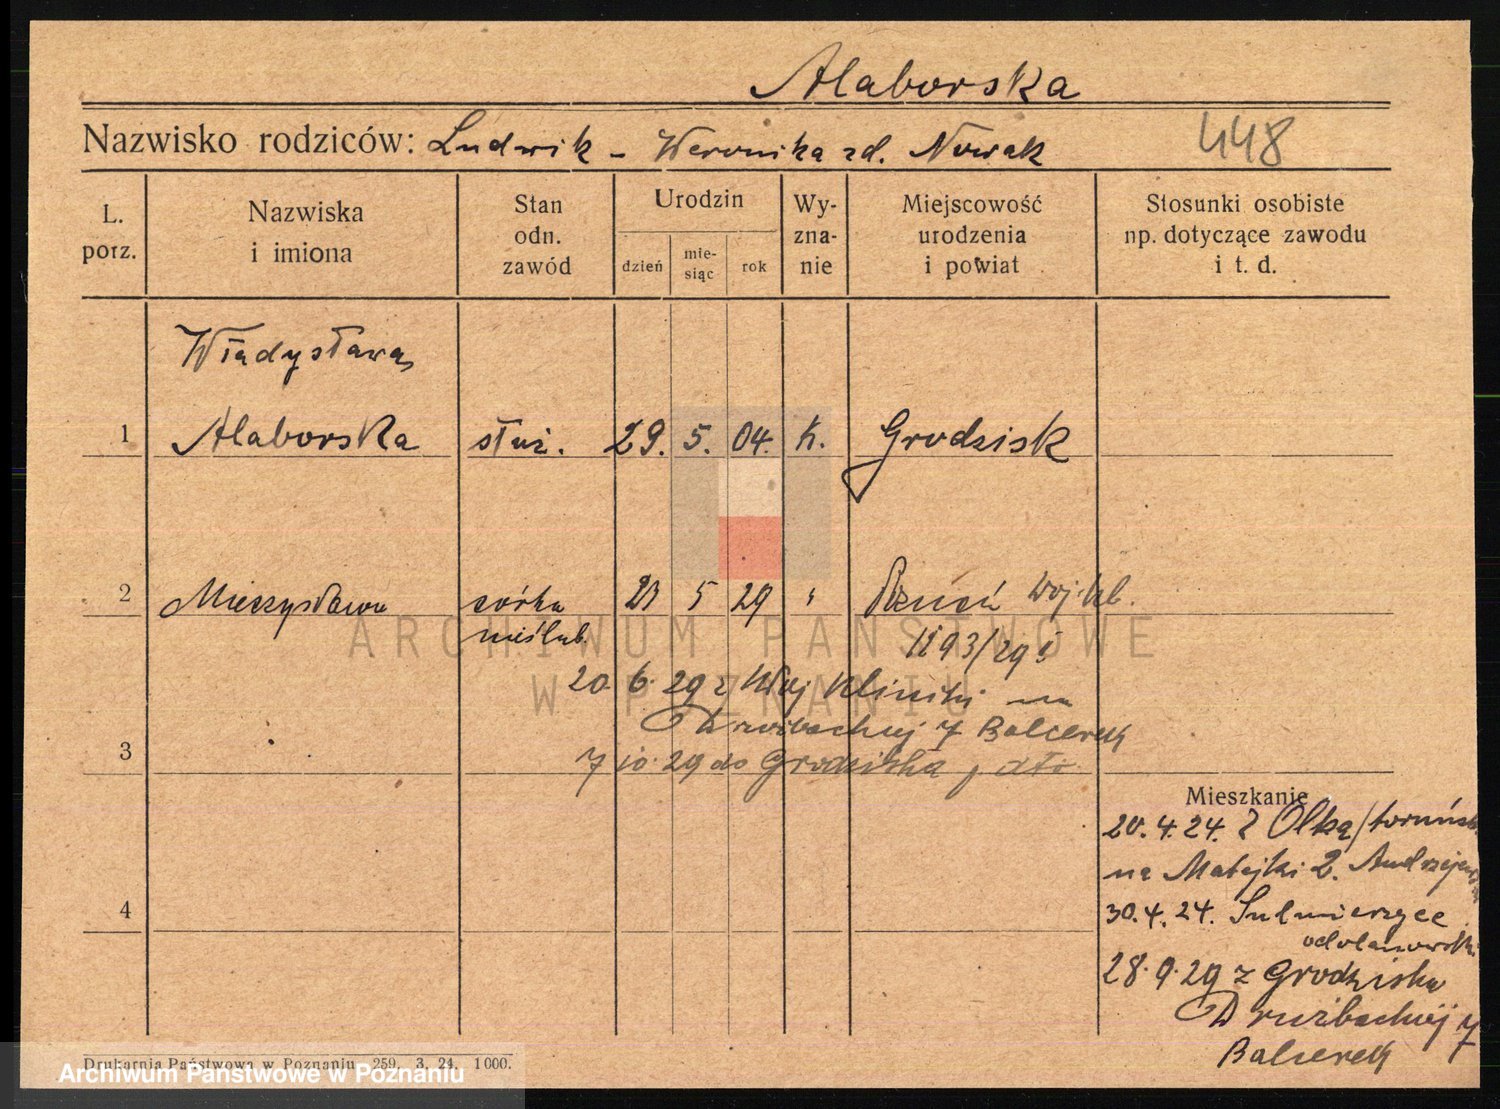 Alaborska
Nazwisko rodziców: Ludwik – Weronika zd. Nowak 448
L. porz.
Nazwiska i imiona
Stan odn. zawód
Urodzin
dzień
mie-
siąc
rok
Wy-
zna-
nie
Miejscowość
urodzenia
i powiat
Stosunki osobiste
np. dotyczące zawodu
i t. d.
Władysława
1 Alaborska służ. 29. 5. 04. k. Grodzisk
2 Mieczysława córka 23 5 29 " Poznań Woj. kl.
nieślub. 1193/29
20. 6. 29 z Woj kliniki na
Drużbackiej 7 Balcerek
3 7 10. 29 do Grodziska
Mieszkanie
20. 4. 24. z Olką/toruńsk
na Matejki 2. Andrzejews
4 30. 4. 24. Sulmierzyce
odolanowski
28. 9. 29 z Grodziska
Drużbackiej 7
Balcerek
Drukarnia Państwowa w Poznaniu 259. 3. 24. 1000.
ARCHIWUM PAŃSTWOWE
W POZNANIU
Archiwum Państwowe w Poznaniu